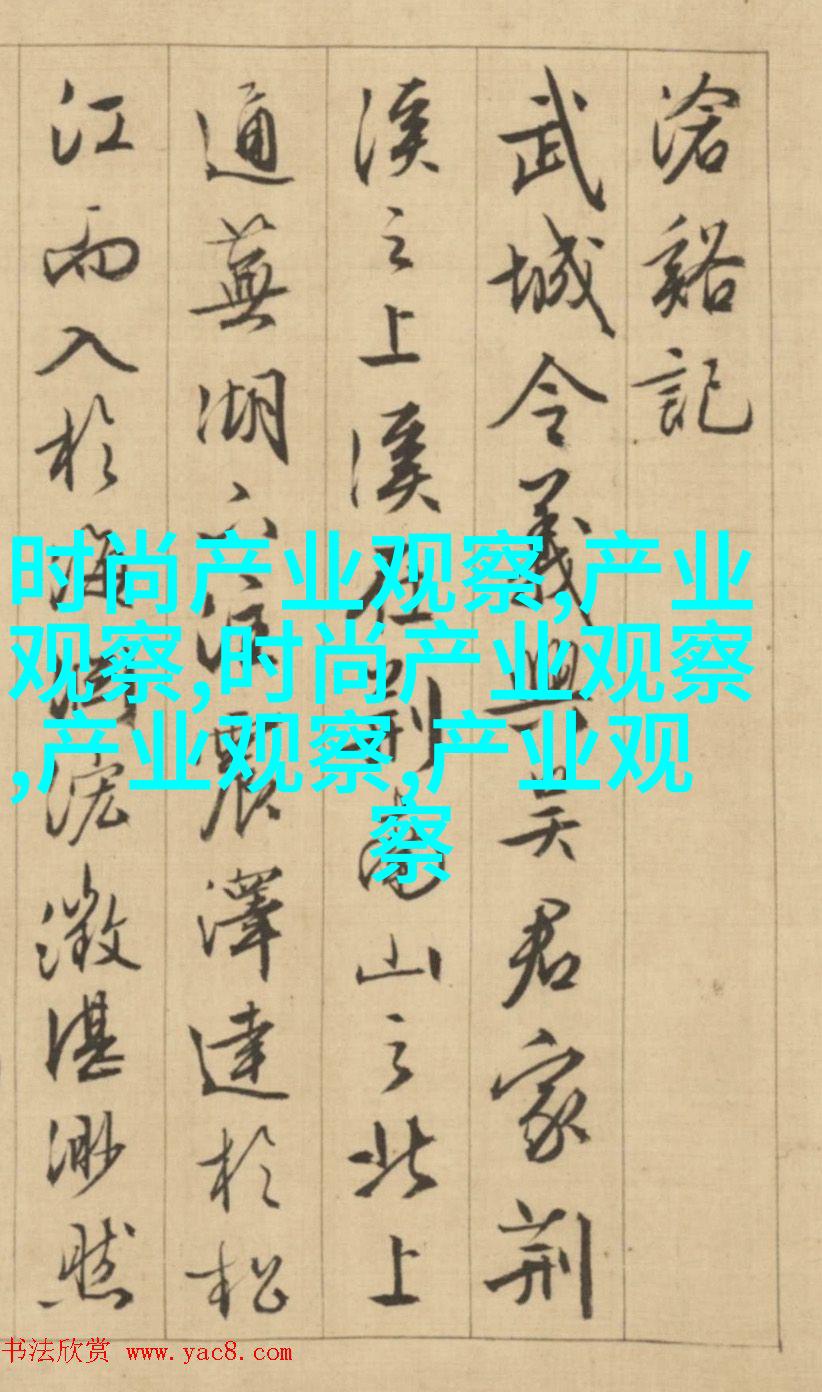 滄谿記
武城令義興吳君家荆
溪之上溪在荆南山之北上
通蕪湖下注震澤達於松
江而入於海浤澂湛渺然
时尚产业观察,产业
观察,时尚产业观察
,产业观察,产业观
察
书法欣赏 www.yac8.com